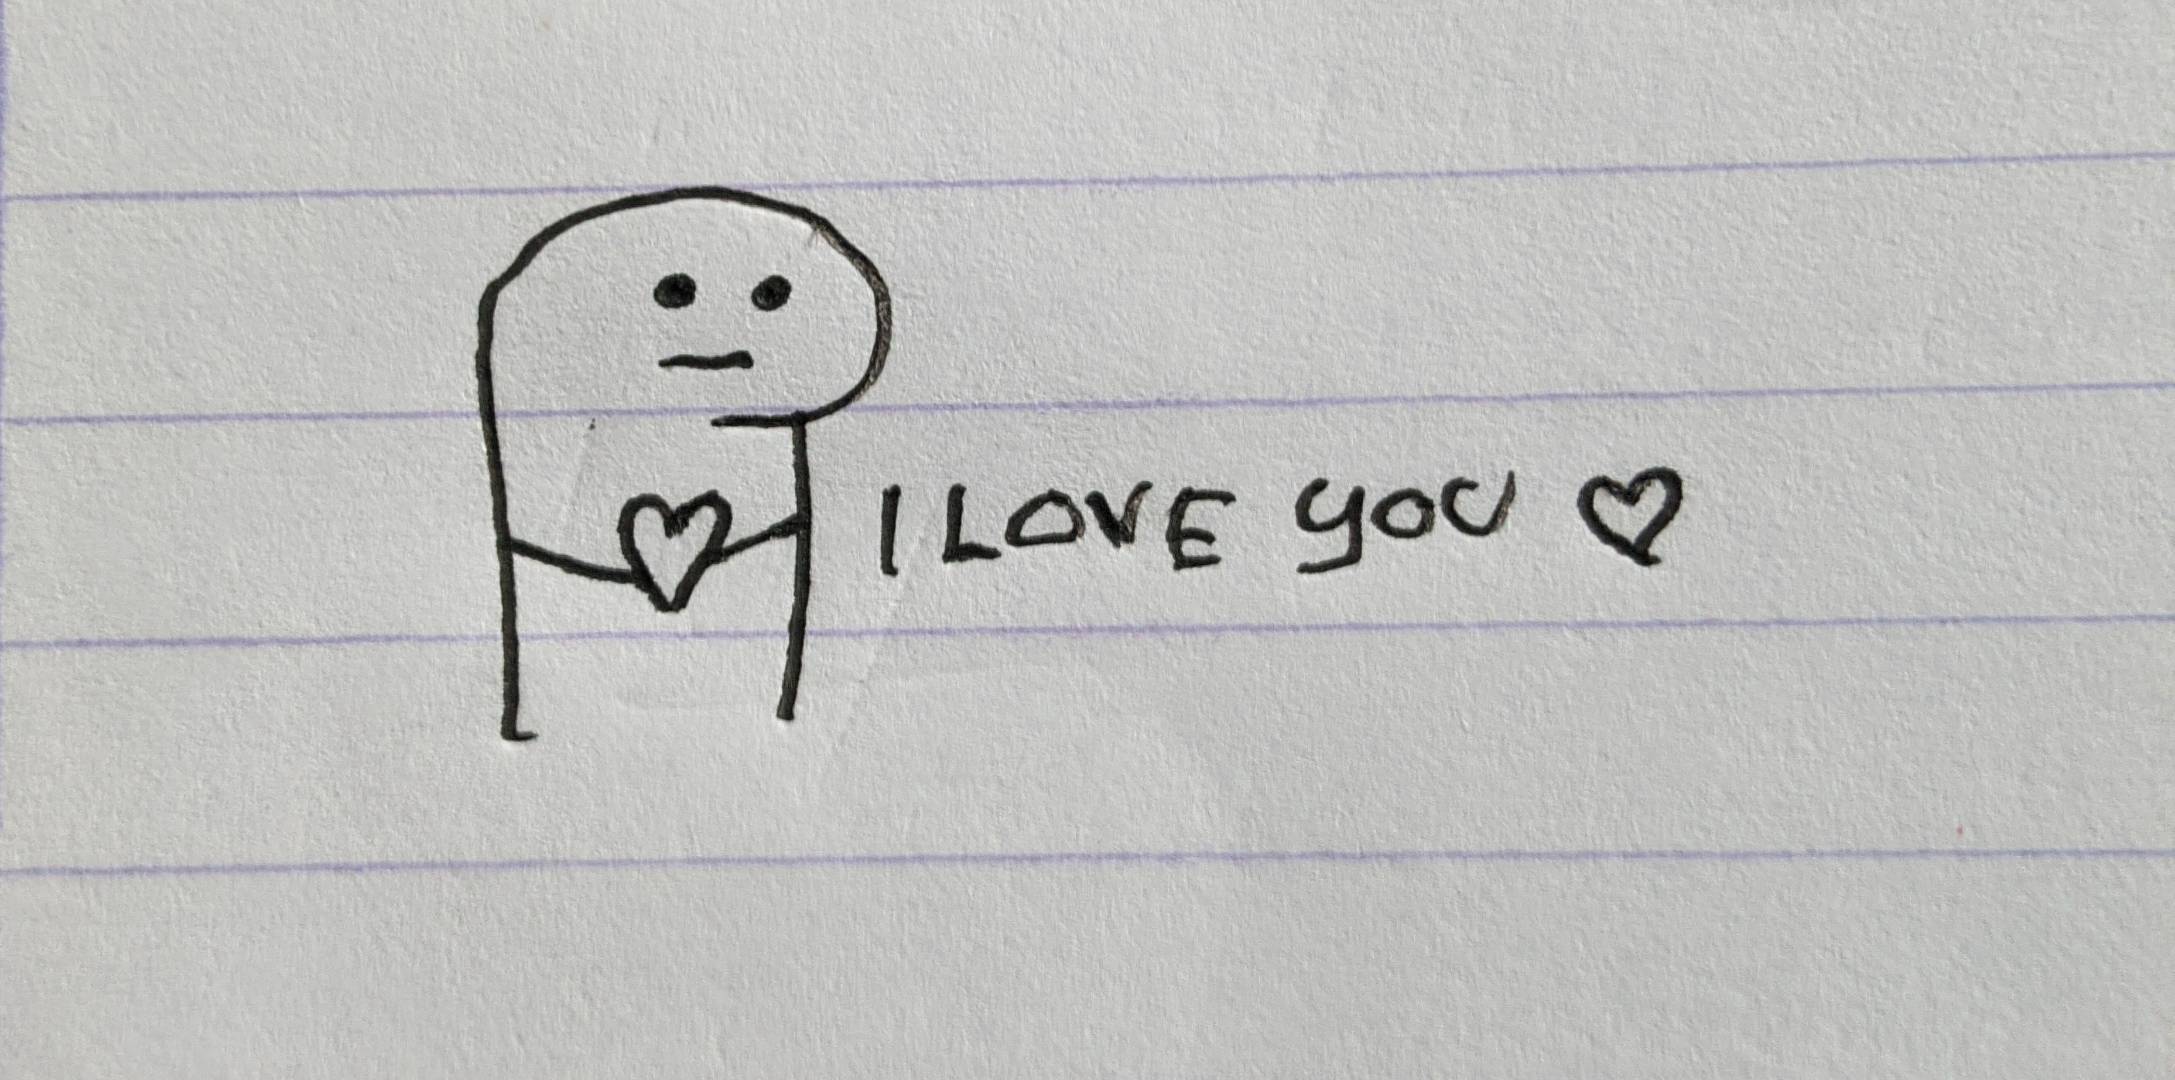 I LOVE YOU ♡